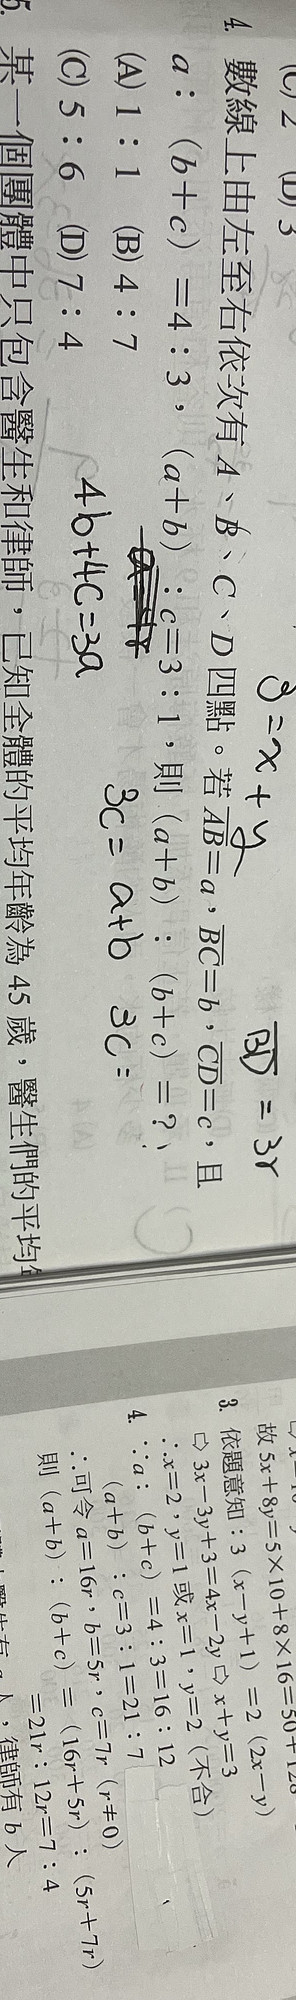 (C) 2 (D) 3
3=x+y
BD = 3r
4. 數線上由左至右依次有 A、B、C、D 四點。若 AB=a，BC=b，CD=c，且
a：(b+c)=4：3，(a+b)：c=3：1，則 (a+b)：(b+c)=？
(A) 1：1 (B) 4：7
(C) 5：6 (D) 7：4
4b+4c=3a
3c=a+b 3c=
5. 某一個團體中只包含醫生和律師，已知全體的平均年齡為 45 歲，醫生們的平均
故 5x+8y=5×10+8×16=50+128
3. 依題意知：3 (x-y+1) =2 (2x-y)
⇨ 3x-3y+3=4x-2y ⇨ x+y=3
∴x=2，y=1 或 x=1，y=2 (不合)
4. ∵a：(b+c)=4：3=16：12
(a+b)：c=3：1=21：7
∴可令 a=16r，b=5r，c=7r (r≠0)
則 (a+b)：(b+c)=(16r+5r)：(5r+7r)
=21r：12r=7：4
人，律師有 b 人